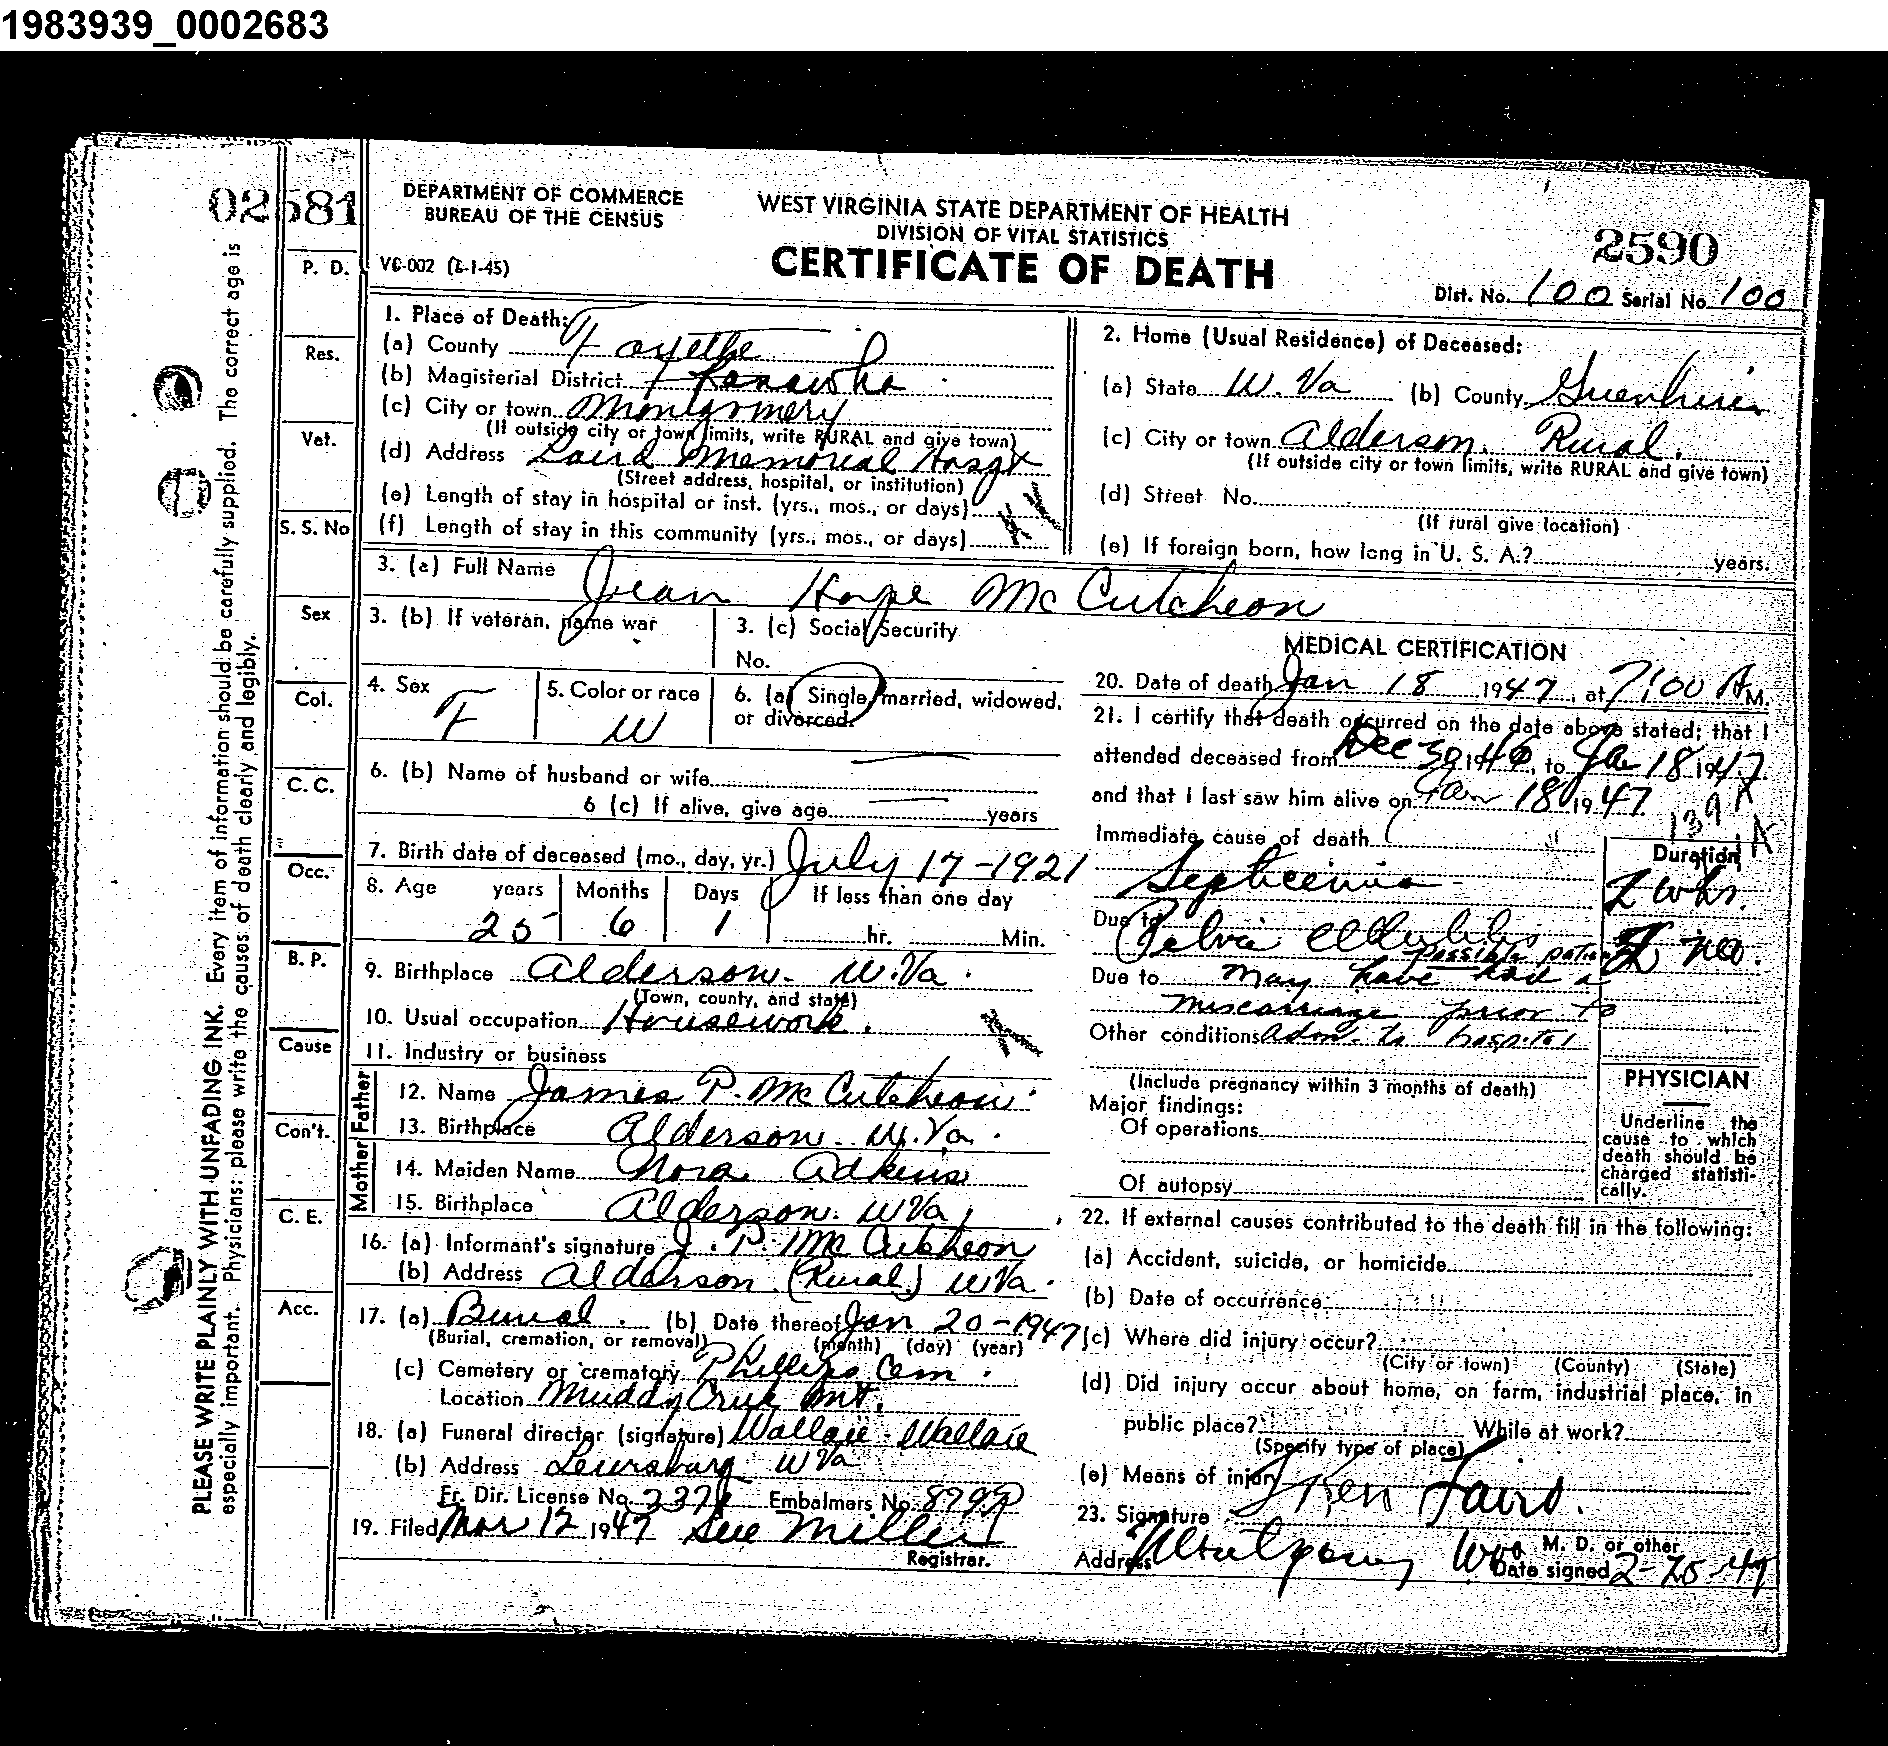 1983939_0002683
02581
DEPARTMENT OF COMMERCE
BUREAU OF THE CENSUS
WEST VIRGINIA STATE DEPARTMENT OF HEALTH
DIVISION OF VITAL STATISTICS
CERTIFICATE OF DEATH
2590
VC-002 (2-1-45)
Dist. No. 100 Serial No. 100
PLEASE WRITE PLAINLY WITH UNFADING INK. Every item of information should be carefully supplied. The correct age is
especially important. Physicians: please write the causes of death clearly and legibly.
P. D.
Res.
Vet.
S. S. No
Sex
Col.
C. C.
Occ.
B. P.
Cause
Con't.
C. E.
Acc.
1. Place of Death:
(a) County Fayette
(b) Magisterial District Kanawha
(c) City or town Montgomery
(If outside city or town limits, write RURAL and give town)
(d) Address Laird Memorial Hospt
(Street address, hospital, or institution)
(e) Length of stay in hospital or inst. (yrs., mos., or days)
(f) Length of stay in this community (yrs., mos., or days)
2. Home (Usual Residence) of Deceased:
(a) State W. Va (b) County Greenbrier
(c) City or town Alderson. Rural.
(If outside city or town limits, write RURAL and give town)
(d) Street No.
(If rural give location)
(e) If foreign born, how long in U. S. A.? years.
3. (a) Full Name Jean Hope McCutcheon
3. (b) If veteran, name war
3. (c) Social Security
No.
4. Sex F
5. Color or race W
6. (a) Single, married, widowed,
or divorced.
6. (b) Name of husband or wife
6 (c) If alive, give age years
7. Birth date of deceased (mo., day, yr.) July 17-1921
8. Age years Months Days If less than one day
25 6 1 hr. Min.
9. Birthplace Alderson. W.Va.
(Town, county, and state)
10. Usual occupation Housework.
11. Industry or business
Father
12. Name James P. McCutcheon
13. Birthplace Alderson. W.Va.
Mother
14. Maiden Name Nora Adkins
15. Birthplace Alderson. W Va
16. (a) Informant's signature J. P. McCutcheon
(b) Address Alderson (Rural) W Va.
17. (a) Burial. (b) Date thereof Jan 20-1947
(Burial, cremation, or removal) (month) (day) (year)
(c) Cemetery or crematory Phillips Cem.
Location Muddy Creek Mt.
18. (a) Funeral director (signature) Wallace & Wallace
(b) Address Lewisburg W Va
Fr. Dir. License No. Embalmers No.
19. Filed Mar 12 1947 Sue Miller
Registrar.
MEDICAL CERTIFICATION
20. Date of death Jan 18 1947, at 7:00 A M.
21. I certify that death occurred on the date above stated; that I
attended deceased from Dec 30 1946, to Jan 18 1947
and that I last saw him alive on Jan 18 1947
Immediate cause of death
Duration
Septicemia 2 wks.
Due to Pelvic Cellulitis
possible patient
Due to may have had a
miscarriage prior to
Other conditions Adm. to hospital
(Include pregnancy within 3 months of death)
Major findings:
Of operations
Of autopsy
PHYSICIAN
Underline the
cause to which
death should be
charged statisti-
cally.
22. If external causes contributed to the death fill in the following:
(a) Accident, suicide, or homicide
(b) Date of occurrence
(c) Where did injury occur?
(City or town) (County) (State)
(d) Did injury occur about home, on farm, industrial place, in
public place? While at work?
(Specify type of place)
(e) Means of injury
23. Signature Laird.
M. D. or other
Address Montgomery W Va Date signed 2-25-47